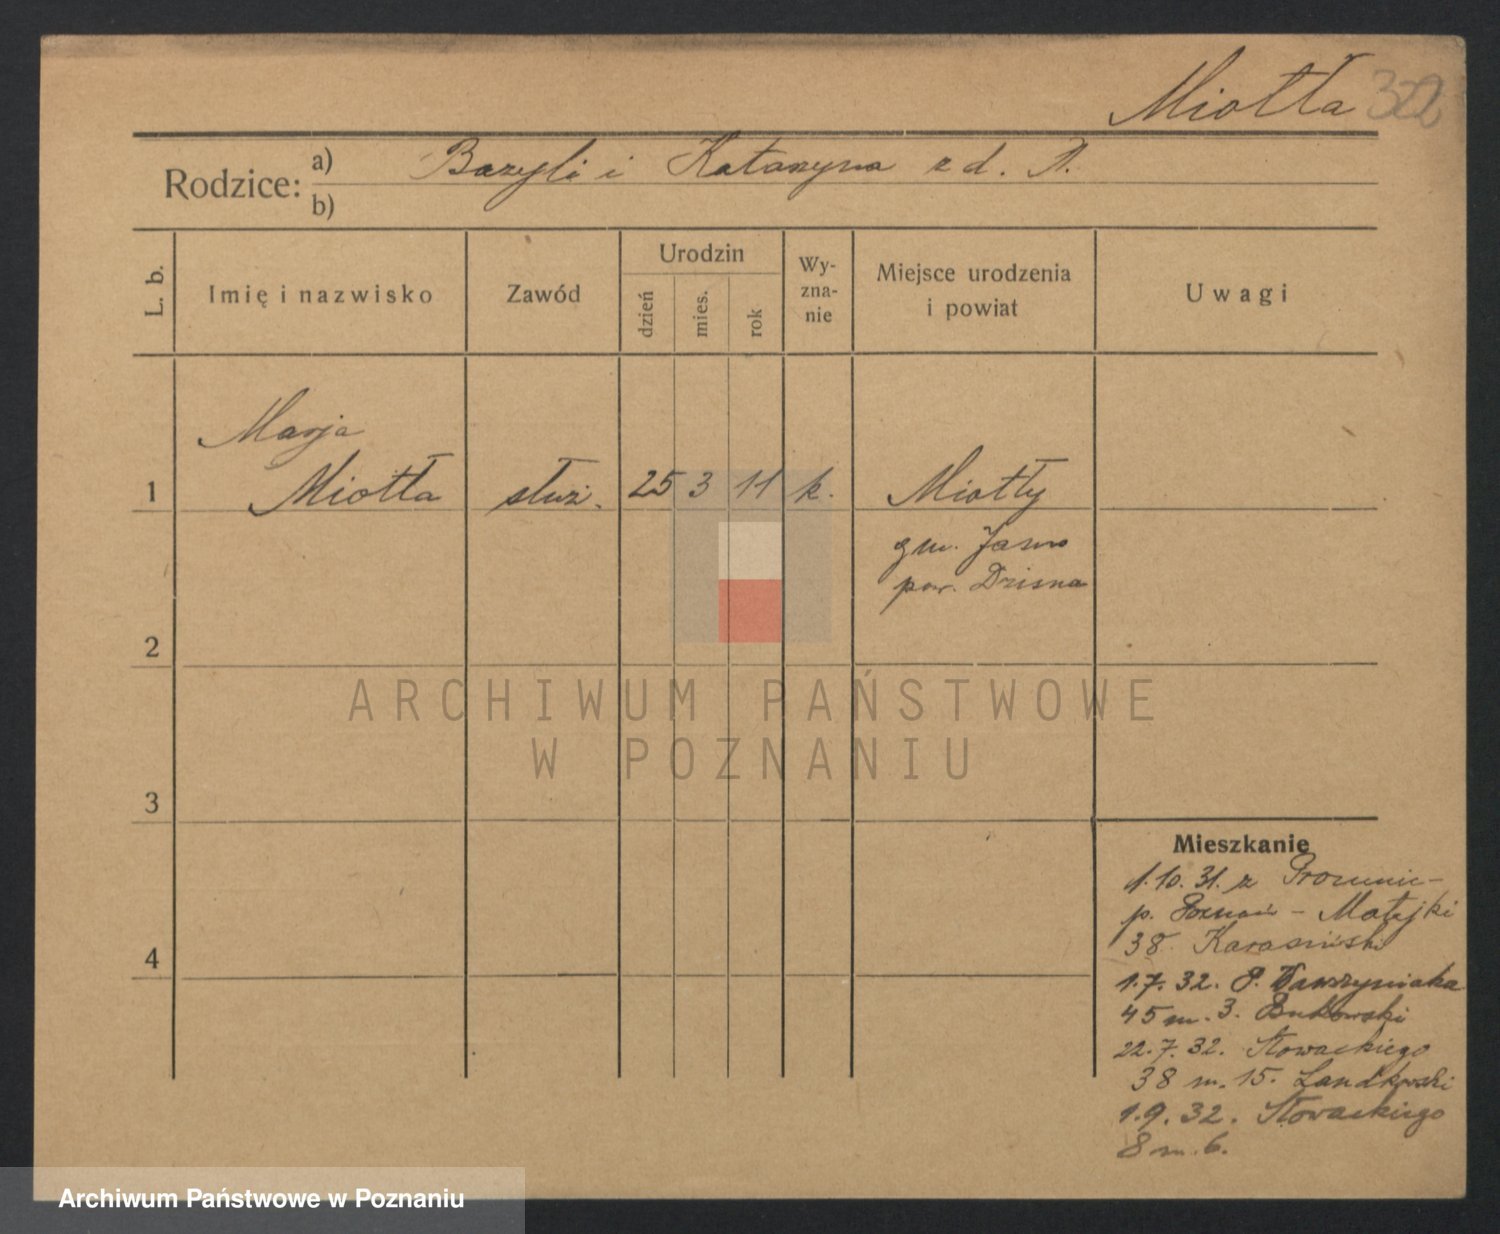 Miotła 322
Rodzice: a) Bazyli i Katarzyna z d. N.
b)
L. b.
Imię i nazwisko
Zawód
Urodzin
dzień
mies.
rok
Wy-
zna-
nie
Miejsce urodzenia
i powiat
Uwagi
Marja
1 Miotła służ. 25 3 11 k. Miotły
gm. Jazno
pow. Dzisna
2
3
4
ARCHIWUM PAŃSTWOWE
W POZNANIU
Mieszkanie
1.10.31. z
p. Poznań - Matejki
38. Karasiński
1.7.32. P. Wawrzyniaka
45 m. 3. Bukowski
22.7.32. Słowackiego
38 m. 15. Landkowski
1.9.32. Słowackiego
8 m. 6.
Archiwum Państwowe w Poznaniu